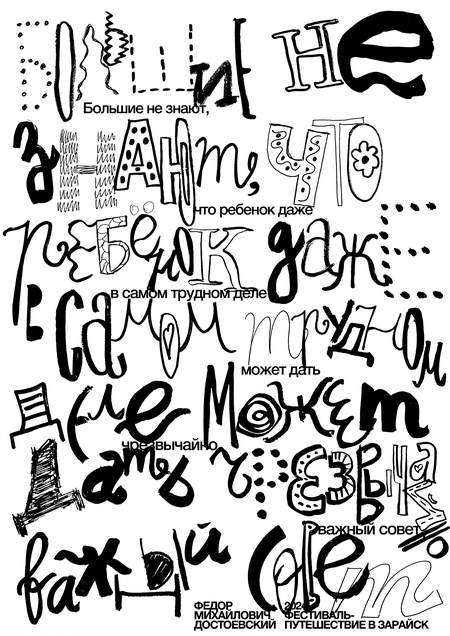 Большие не
Большие не знают,
знают, что
что ребенок даже
ребёнок даже
в самом трудном деле
в самом трудном
может дать
деле может
чрезвычайно
дать чрезвычайно
важный совет
важный совет
ФЕДОР
МИХАЙЛОВИЧ
ДОСТОЕВСКИЙ
2024
ФЕСТИВАЛЬ-
ПУТЕШЕСТВИЕ В ЗАРАЙСК